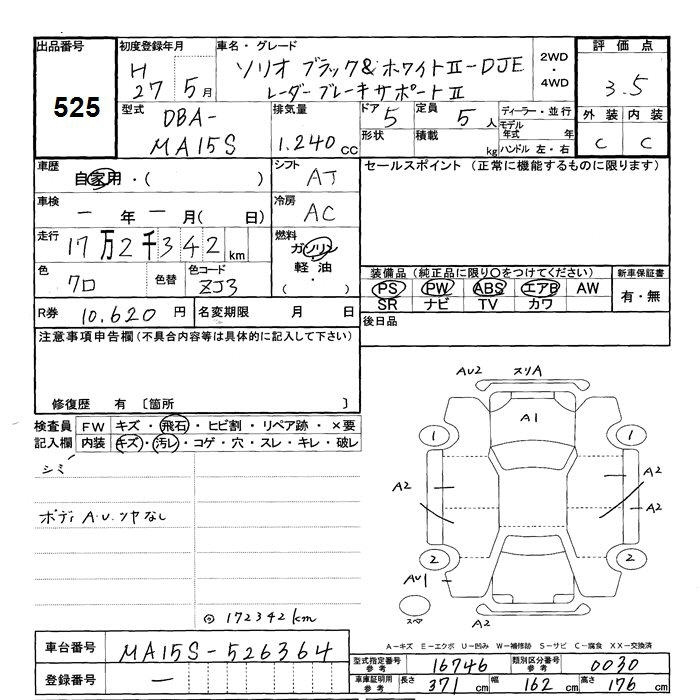 出品番号
525
初度登録年月
H
27 5月
車名・グレード
ソリオ ブラック&ホワイトⅡ-DJE
レーダーブレーキサポートⅡ
2WD
・
4WD
評価点
3.5
外装 内装
C C
型式
DBA-
MA15S
排気量
1.240cc
ドア
5
定員
5人
形状
積載
kg
ディーラー・並行
モデル年式 年
ハンドル 左・右
車歴
自家用・( )
シフト
AT
セールスポイント (正常に機能するものに限ります)
車検
一年一月( 日)
冷房
AC
走行
17万2千342km
燃料
ガソリン
軽油
( ・ )
色
クロ
色替
色コード
ZJ3
装備品 (純正品に限り○をつけてください)
PS PW ABS エアB AW
SR ナビ TV カワ
新車保証書
有・無
R券
10.620円
名変期限 月 日
後日品
注意事項申告欄(不具合内容等は具体的に記入して下さい)
修復歴 有 〔箇所 〕
検査員記入欄
FW キズ・飛石・ヒビ割・リペア跡・×要
内装 キズ・汚レ・コゲ・穴・スレ・キレ・破レ
シミ
ボディA.U.ツヤなし
◎172342km
AU2 スリA
A1
1 1
A2 A2
A2
2 2
AU1
スペア
A2
A-キズ E-エクボ U-凹み W-補修跡 S-サビ C-腐食 XX-交換済
車台番号
MA15S-526364
登録番号
一
型式指定番号参考
16746
類別区分番号参考
0030
車庫証明用参考
長さ 371cm 幅 162cm 高さ 176cm